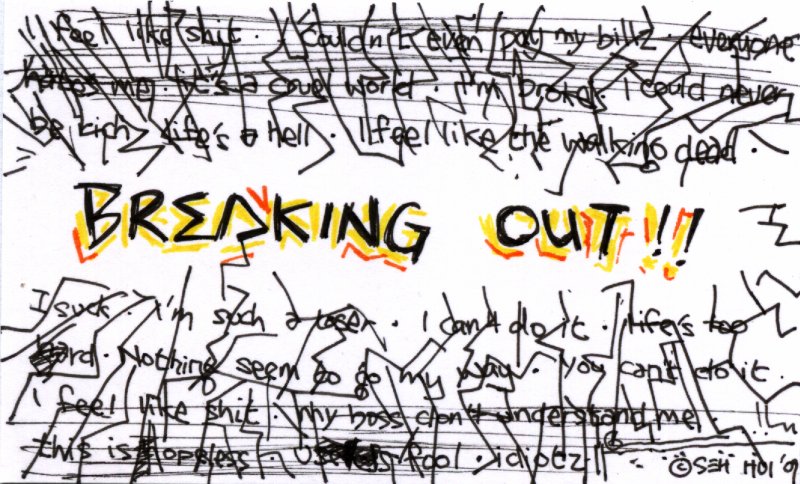 I feel like shit · I couldn't even pay my billz · everyone
hates me · it's a cruel world · I'm broke · I could never
be rich · life's a hell · I feel like the walking dead ·
BREAKING OUT!!
I suck · I'm such a loser · I can't do it · life's too
hard · Nothing seem to go my way · you can't do it ·
I feel like shit · my boss don't understand me ·
this is hopeless · useless fool · idiotz!!
© SEH HUI '9